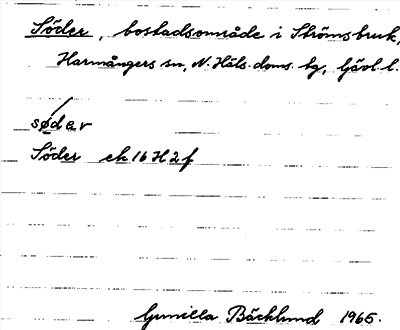 Söder, bostadsområde i Strömsbruk,
Harmångers sn, N. Häls. doms. tg, Gävl. l.
sø̱der
Söder ek 16 H 2 f
Gunilla Bäcklund 1965.